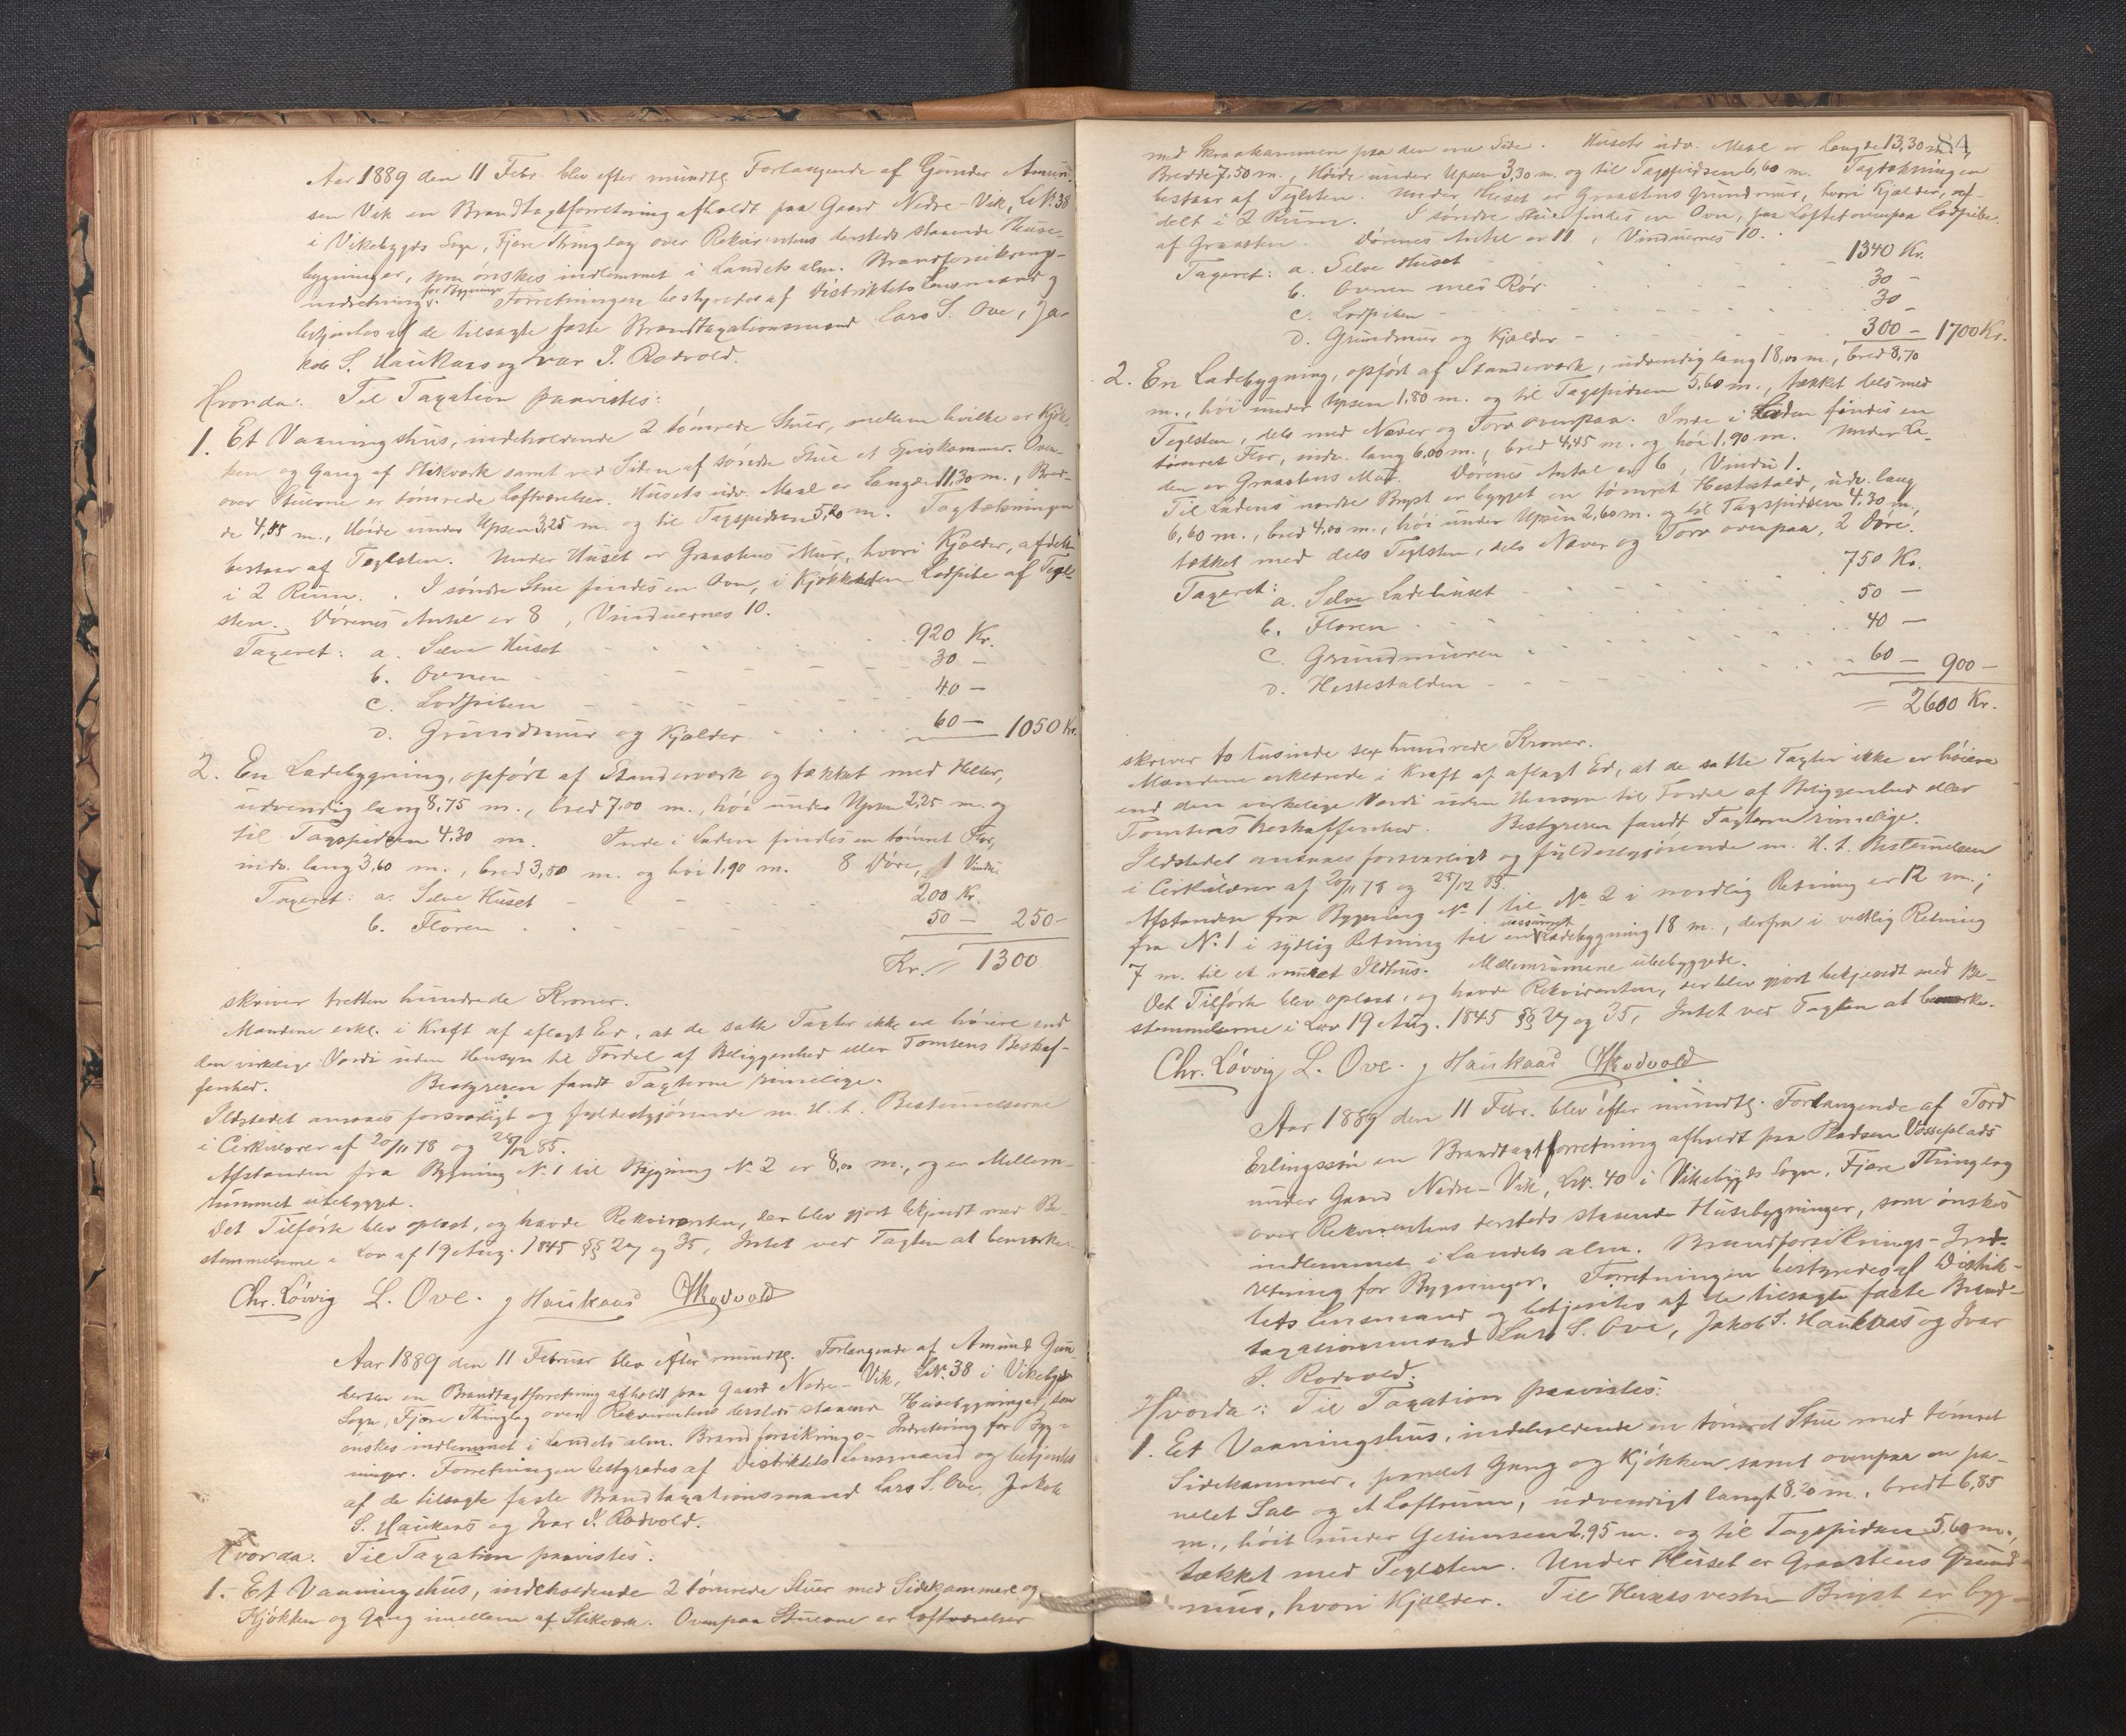 Aar 1889 den 11 Febr. blev efter mundtlg Forlangende af Gunder Amund-
sen Vik en Brandtaxtforretning afholdt paa Gaard Nedre-Vik, LNº 38
i Vikebygds Sogn, Fjære Thinglag over Rekvirentens dersteds staaende Huse-
bygninger, som ønskes indlemmet i Landets alm. Brandforsikrings-
indretning for Bygninger. Forretningen bestyredes af Distriktets Lensmand og
betjentes af de tilsagte faste Brandtaxationsmænd Lars S. Ove, Ja-
kob S. Haukaas og Ivar I. Rødvold.
Hvorda: Til Taxation paavistes:
1. Et Vaaningshus, indeholdende 2 tømrede Stuer, mellem hvilke er Kjøk-
ken og Gang af Stikværk samt ved Siden af søndre Stue et Spiskammer. Oven-
over Stuerne er tømrede Loftværelser. Husets udv. Maal er Længde 11,30 m., Bred-
de 4,85 m., Høide under Upsen 3,25 m. og til Tagspidsen 5,20 m. Tagtækningen
bestaar af Teglsten. Under Huset er Graastens Mur, hvori Kjælder, afdelt
i 2 Rum. I søndre Stue findes en Ovn, i Kjøkkenet Lodpibe af Tegl-
sten. Dørenes Antal er 8, Vinduernes 10.
Taxeret: a. Selve Huset 920 Kr.
b. Ovnen 30 —
c. Lodpiben 40 —
d. Grundmur og Kjælder 60 — 1050 Kr.
2. En Ladebygning, opført af Standerværk og tækket med Heller,
udvendig lang 8,75 m., bred 7,00 m., høi under Upsen 2,25 m. og
til Tagspidsen 4,30 m. Inde i Laden findes en tømret Flor,
indv. lang 3,60 m., bred 3,50 m. og høi 1,90 m. 8 Døre, 1 Vindu.
Taxeret: a. Selve Huset 200 Kr.
b. Floren 50 — 250 —
Kr. = 1300
skriver tretten hundrede Kroner.
Mændene erkl. i Kraft af aflagt Eed, at de satte Taxter ikke ere høiere end
den virkelige Værdi uden Hensyn til Fordel af Beliggenhed eller Tomtens Beskaf-
fenhed. Bestyreren fandt Taxterne rimelige.
Ildstedet ansaaes forsvarligt og fyldestgjørende m. H. t. Bestemmelserne
i Cirkulærer af 20/11 78 og 28/12 85.
Afstanden fra Bygning Nº 1 til Bygning Nº 2 er 8,00 m., og er Mellem-
rummet ubebygget.
Det Tilførte blev oplæst, og havde Rekvirenten, der blev gjort bekjendt med Be-
stemmelserne i Lov af 19 Aug. 1845 §§ 27 og 35, Intet ved Taxten at bemærke.
Chr. Løvvig L. Ove. J Haukaas IIRødvold
Aar 1889 den 11 Februar blev efter mundtlg. Forlangende af Amund Gun-
dersen en Brandtaxtforretning afholdt paa Gaard Nedre-Vik, LNº. 38 i Vikebygds
Sogn, Fjære Thinglag over Rekvirentens dersteds staaende Husebygninger, som
ønskes indlemmet i Landets alm. Brandforsikrings-Indretning for Byg-
ninger. Forretningen bestyredes af Distriktets Lensmand og betjentes
af de tilsagte faste Brandtaxationsmænd Lars S. Ove, Jakob
S. Haukaas og Ivar I. Rødvold.
Hvorda. Til Taxation paavistes:
1. Et Vaaningshus, indeholdende 2 tømrede Stuer med Sidekammere og
Kjøkken og Gang imellem af Stikværk. Ovenpaa Stuerne er Loftværelser
84
med Skraakammer paa den ene Side. Husets udv. Maal er Længde 13,30 m.,
Bredde 7,50 m., Høide under Upsen 3,30 m. og til Tagspidsen 6,60 m. Tagtækningen
bestaar af Teglsten. Under Huset er Graastens Grundmur, hvori Kjælder, af-
delt i 2 Rum. I søndre Stue findes en Ovn, paa Loftet ovenpaa Lodpibe
af Graasten. Dørenes Antal er 11, Vinduernes 10.
Taxeret: a. Selve Huset 1340 Kr.
b. Ovnen med Rør 30 —
c. Lodpiben 30 —
d. Grundmur og Kjælder 300 — 1700 Kr.
2. En Ladebygning, opført af Standerværk, udvendig lang 18,00 m., bred 8,70
m., høi under Upsen 1,80 m. og til Tagspidsen 5,60 m., tækket dels med
Teglsten, dels med Næver og Torv ovenpaa. Inde i Laden findes en
tømret Flor, indv. lang 6,00 m., bred 4,45 m. og høi 1,90 m. Under La-
den er Graastens Mur. Dørenes Antal er 6, Vindu 1.
Til Ladens nordre Bryst er bygget en tømret Hestestald, udv. lang
6,60 m., bred 4,00 m., høi under Upsen 2,60 m. og til Tagspidsen 4,30 m.,
tækket med dels Teglsten, dels Næver og Torv ovenpaa, 2 Døre.
Taxeret: a. Selve Ladehuset 750 Kr.
b. Floren 50 —
c. Grundmuren 40 —
d. Hestestalden 60 — 900 —
= 2600 Kr.
skriver to tusinde sex hundrede Kroner.
Mændene erklærede i Kraft af aflagt Ed, at de satte Taxter ikke er høiere
end den virkelige Værdi uden Hensyn til Fordel af Beliggenhed eller
Tomtens Beskaffenhed. Bestyreren fandt Taxterne rimelige.
Ildstedet ansaaes forsvarligt og fyldestgjørende m. H. t. Bestemmelsen
i Cirkulærer af 20/11 78 og 28/12 85.
Afstanden fra Bygning Nº 1 til Nº 2 i nordlig Retning er 12 m.;
fra Nº 1 i sydlig Retning til en uassureret Ladebygning 18 m., derfra i vestlig Retning
7 m. til et muret Ildhus. Mellemrummene ubebyggede.
Det Tilførte blev oplæst, og havde Rekvirenten, der blev gjort bekjendt med Be-
stemmelserne i Lov 19 Aug. 1845 §§ 27 og 35, Intet ved Taxten at bemærke.
Chr. Løvvig L. Ove. J Haukaas IIRødvold
Aar 1889 den 11 Febr. blev efter mundtlg. Forlangende af Tord
Erlingssøn en Brandtaxtforretning afholdt paa Pladsen Vasseplads
under Gaard Nedre-Vik, LNº. 40 i Vikebygds Sogn, Fjære Thinglag
over Rekvirentens dersteds staaende Husebygninger, som ønskes
indlemmet i Landets alm. Brandforsikrings-Ind-
retning for Bygninger. Forretningen bestyredes af Distrik-
tets Lensmand og betjentes af de tilsagte faste Brand-
taxationsmænd Lars S. Ove, Jakob S. Haukaas og Ivar
I. Rødvold.
Hvorda: Til Taxation paavistes:
1. Et Vaaningshus, indeholdende en tømret Stue med tømret
Sidekammer, panelet Gang og Kjøkken samt ovenpaa en pa-
nelet Sal og et Loftrum, udvendigt langt 8,20 m., bredt 6,85
m., høit under Gesimsen 2,95 m. og til Tagspidsen 5,60 m.,
tækket med Teglsten. Under Huset er Graastens Grund-
mur, hvori Kjælder. Til Husets vestre Bryst er byg-